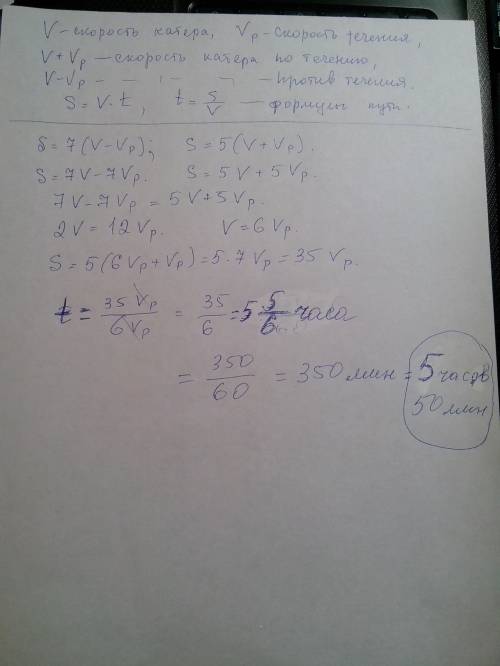 V – скорость катера, Vр – скорость течения,
V+Vр — скорость катера по течению,
V–Vр — — " — — " — против течения.
S = V·t, t = S/V — формулы пути.
S = 7(V–Vр); S = 5(V+Vр).
S = 7V–7Vр. S = 5V+5Vр.
7V–7Vр = 5V+5Vр.
2V = 12Vр. V = 6Vр.
S = 5(6Vр+Vр) = 5·7Vр = 35Vр.
t = 35Vр/6Vр = 35/6 = 5 5/6 часа
= 350/60 = 350 мин = 5 часов
50 мин